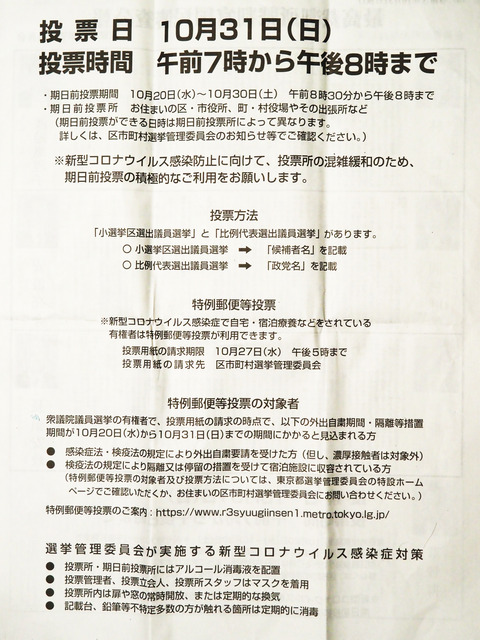 投票日 10月31日(日)
投票時間 午前7時から午後8時まで
・期日前投票期間 10月20日(水)〜10月30日(土) 午前8時30分から午後8時まで
・期日前投票所 お住まいの区・市役所、町・村役場やその出張所など
(期日前投票ができる日時は期日前投票所によって異なります。
詳しくは、区市町村選挙管理委員会のお知らせ等でご確認ください。)
※新型コロナウイルス感染防止に向けて、投票所の混雑緩和のため、
期日前投票の積極的なご利用をお願いします。
投票方法
「小選挙区選出議員選挙」と「比例代表選出議員選挙」があります。
○ 小選挙区選出議員選挙 ➡ 「候補者名」を記載
○ 比例代表選出議員選挙 ➡ 「政党名」を記載
特例郵便等投票
※新型コロナウイルス感染症で自宅・宿泊療養などをされている
有権者は特例郵便等投票が利用できます。
投票用紙の請求期限 10月27日(水) 午後5時まで
投票用紙の請求先 区市町村選挙管理委員会
特例郵便等投票の対象者
衆議院議員選挙の有権者で、投票用紙の請求の時点で、以下の外出自粛期間・隔離等措置
期間が10月20日(水)から10月31日(日)までの期間にかかると見込まれる方
● 感染症法・検疫法の規定により外出自粛要請を受けた方(但し、濃厚接触者は対象外)
● 検疫法の規定により隔離又は停留の措置を受けて宿泊施設に収容されている方
(特例郵便等投票の対象者及び投票方法については、東京都選挙管理委員会の特設ホーム
ページでご確認いただくか、お住まいの区市町村選挙管理委員会にお問い合わせください。)
特例郵便等投票のご案内:https://www.r3syuugiinsen1.metro.tokyo.lg.jp/
選挙管理委員会が実施する新型コロナウイルス感染症対策
● 投票所・期日前投票所にはアルコール消毒液を配置
● 投票管理者、投票立会人、投票所スタッフはマスクを着用
● 投票所内は扉や窓の常時開放、または定期的な換気
● 記載台、鉛筆等不特定多数の方が触れる箇所は定期的に消毒